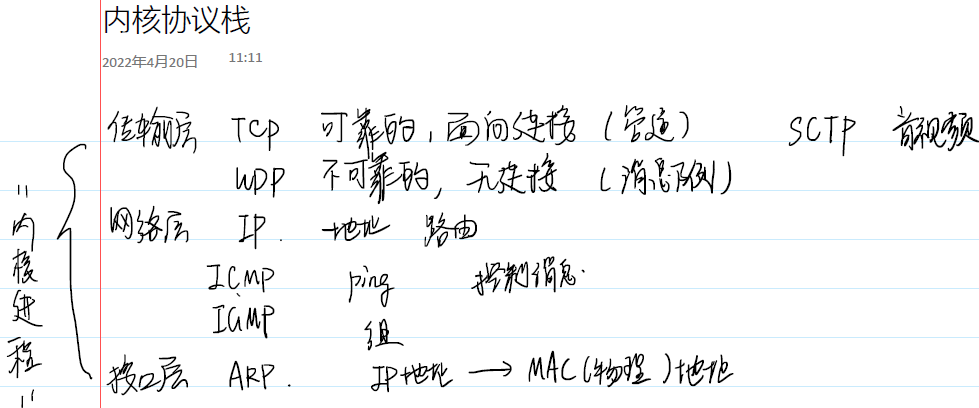 内核协议栈
2022年4月20日 11:11
传输层 TCP 可靠的，面向连接（管道） SCTP 音视频
UDP 不可靠的，无连接（消息队列）
网络层 IP. 地址 路由
ICMP ping 控制消息.
IGMP 组
接口层 ARP. IP地址 → MAC(物理)地址
"内核进程"